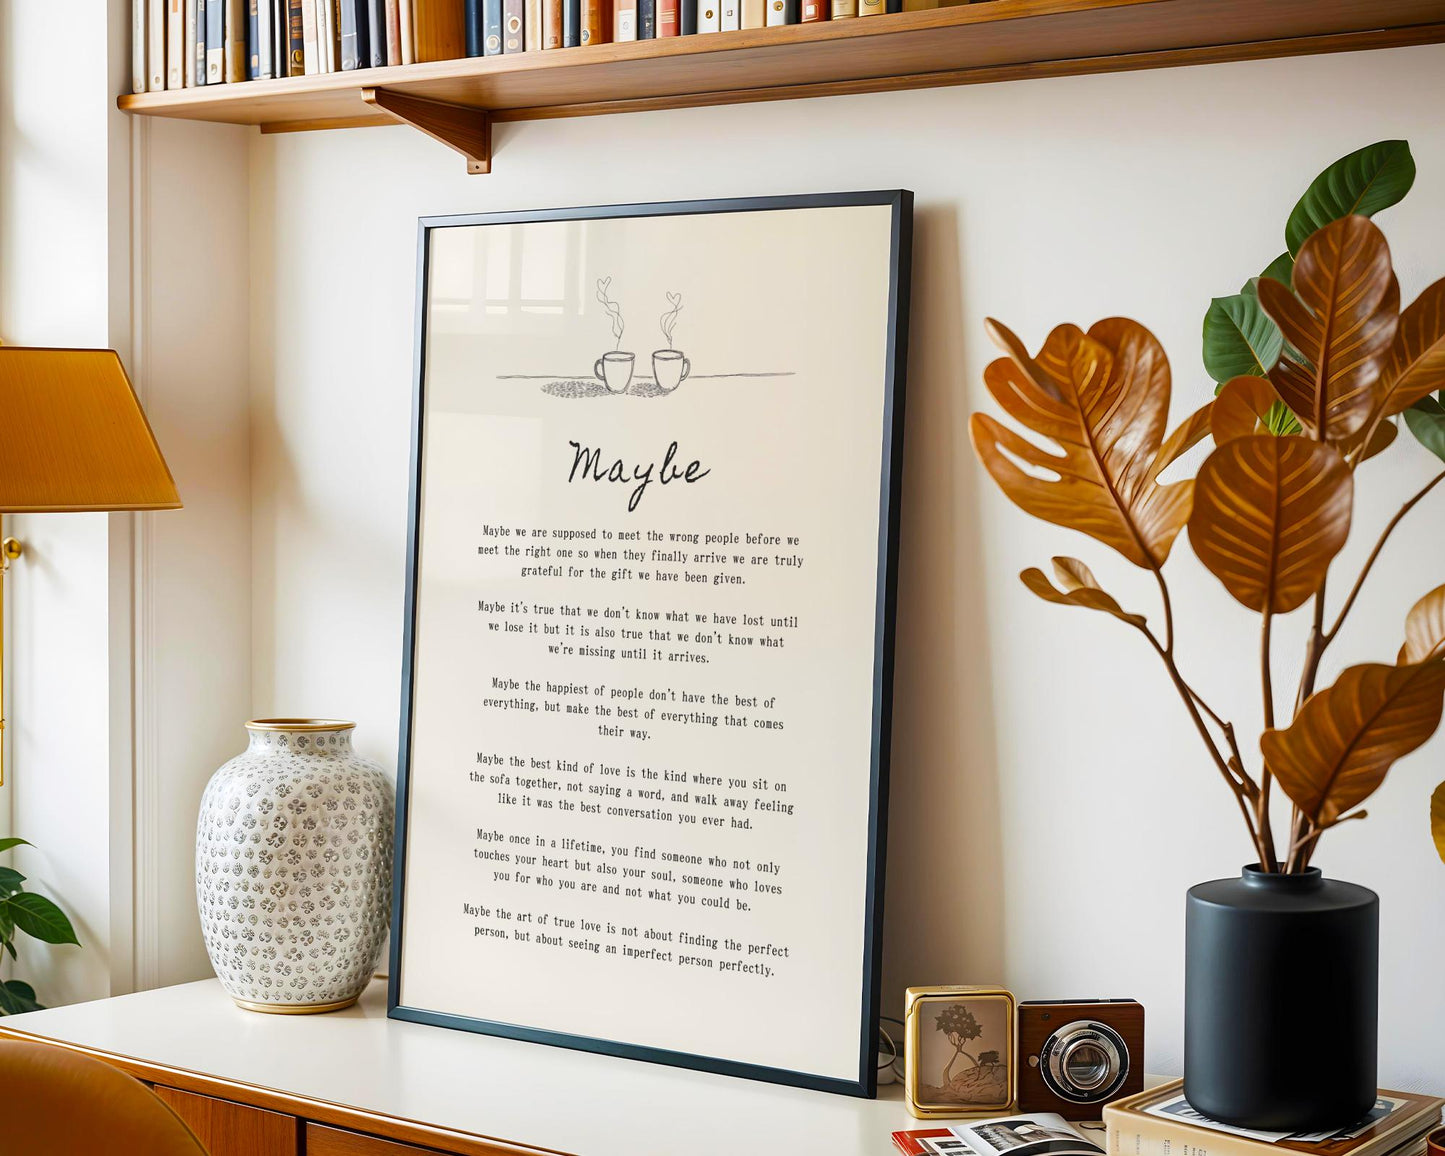 Maybe
Maybe we are supposed to meet the wrong people before we
meet the right one so when they finally arrive we are truly
grateful for the gift we have been given.
Maybe it's true that we don't know what we have lost until
we lose it but it is also true that we don't know what
we're missing until it arrives.
Maybe the happiest of people don't have the best of
everything, but make the best of everything that comes
their way.
Maybe the best kind of love is the kind where you sit on
the sofa together, not saying a word, and walk away feeling
like it was the best conversation you ever had.
Maybe once in a lifetime, you find someone who not only
touches your heart but also your soul, someone who loves
you for who you are and not what you could be.
Maybe the art of true love is not about finding the perfect
person, but about seeing an imperfect person perfectly.